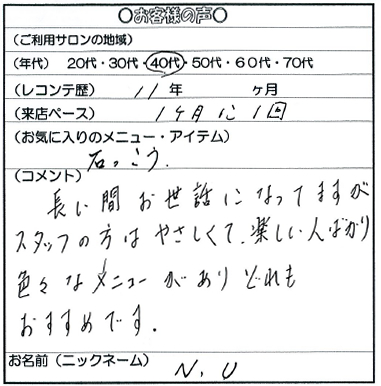 ○お客様の声○
(ご利用サロンの地域)
(年代) 20代・30代・40代・50代・60代・70代
(レコンテ歴) 11年 ヶ月
(来店ペース) 1ヶ月に1回
(お気に入りのメニュー・アイテム)
石っこう.
(コメント)
長い間お世話になってますが
スタッフの方はやさしくて、楽しい人ばかり
色々なメニューがありどれも
おすすめです.
お名前(ニックネーム) N,U